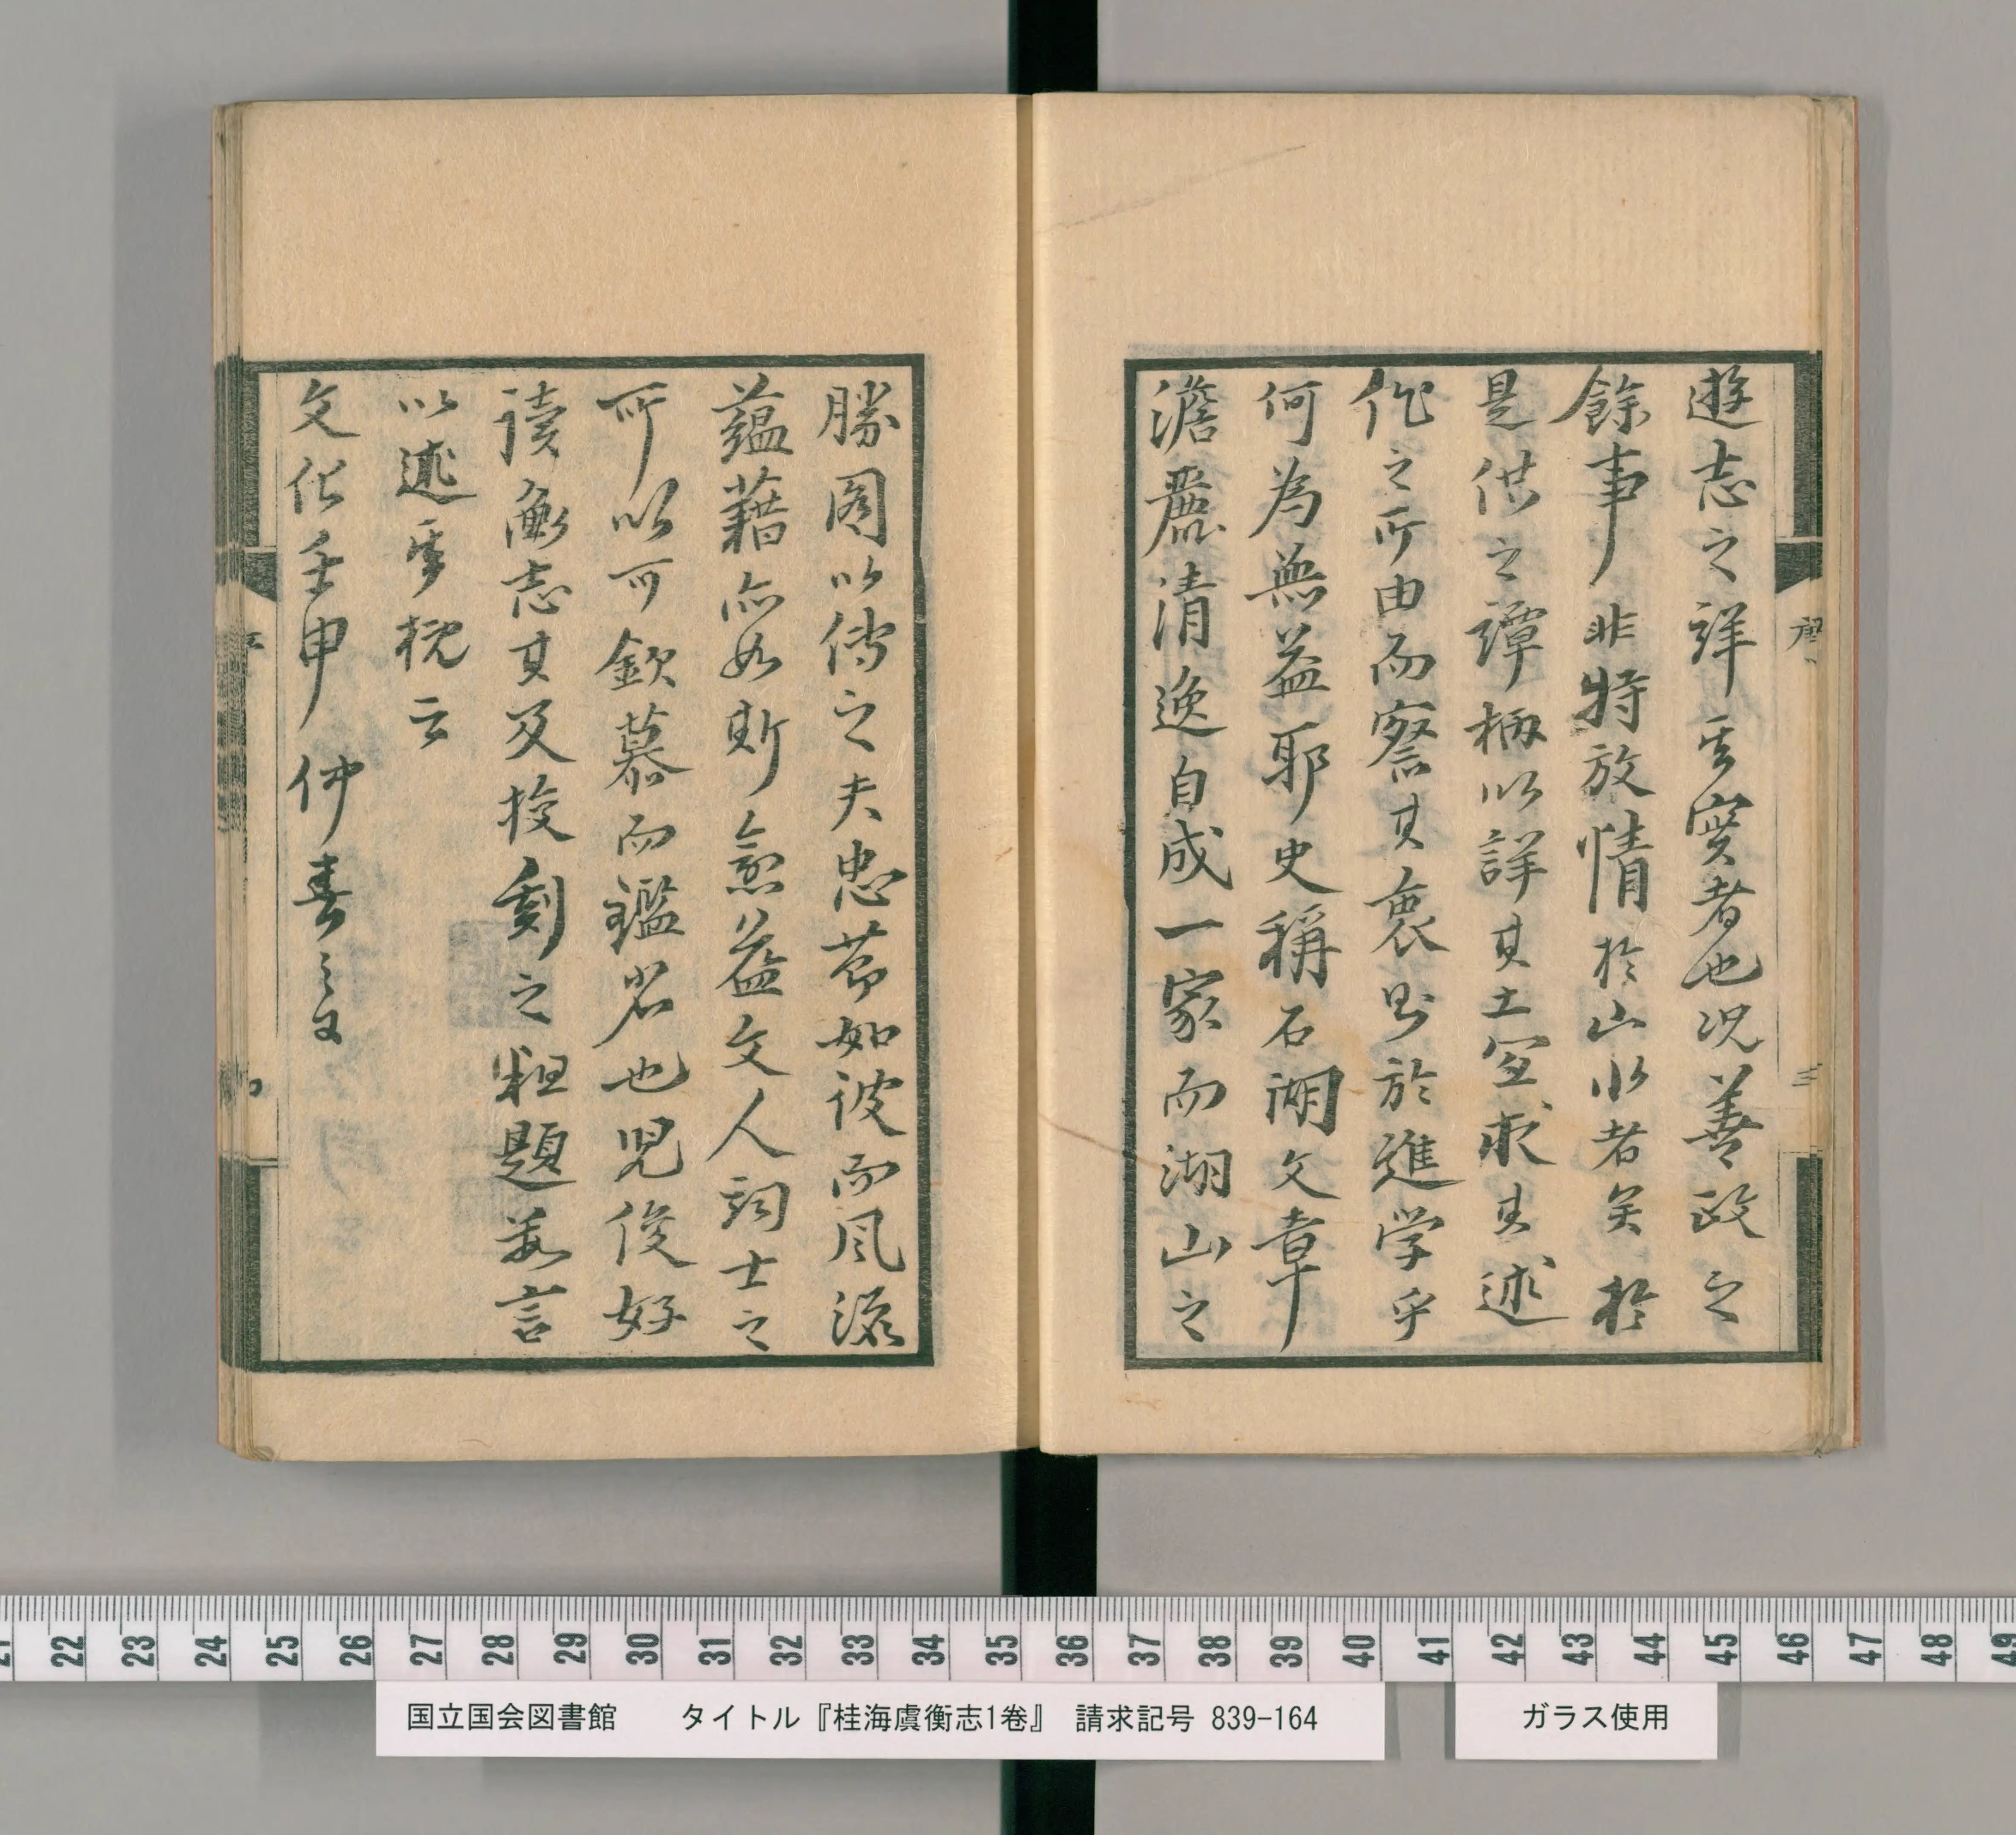 遊志之詳且實者也况善政之
餘事非特放情於山水者矣於
是供之譚柄以詳其土宜求其述
作之所由而察其衷思於進学乎
何為無益耶史稱石湖文章
澹麗清逸自成一家而湖山之
序
三
勝図以傳之夫忠節如彼而風流
蘊藉亦如斯宜益文人詞士之
所以可欽慕而鑑名也児俊好
読衡志其及授剞之粗題数言
以述乎概云
文化壬申仲春之
国立国会図書館 タイトル『桂海虞衡志1巻』 請求記号 839-164
ガラス使用
21 22 23 24 25 26 27 28 29 30 31 32 33 34 35 36 37 38 39 40 41 42 43 44 45 46 47 48 49